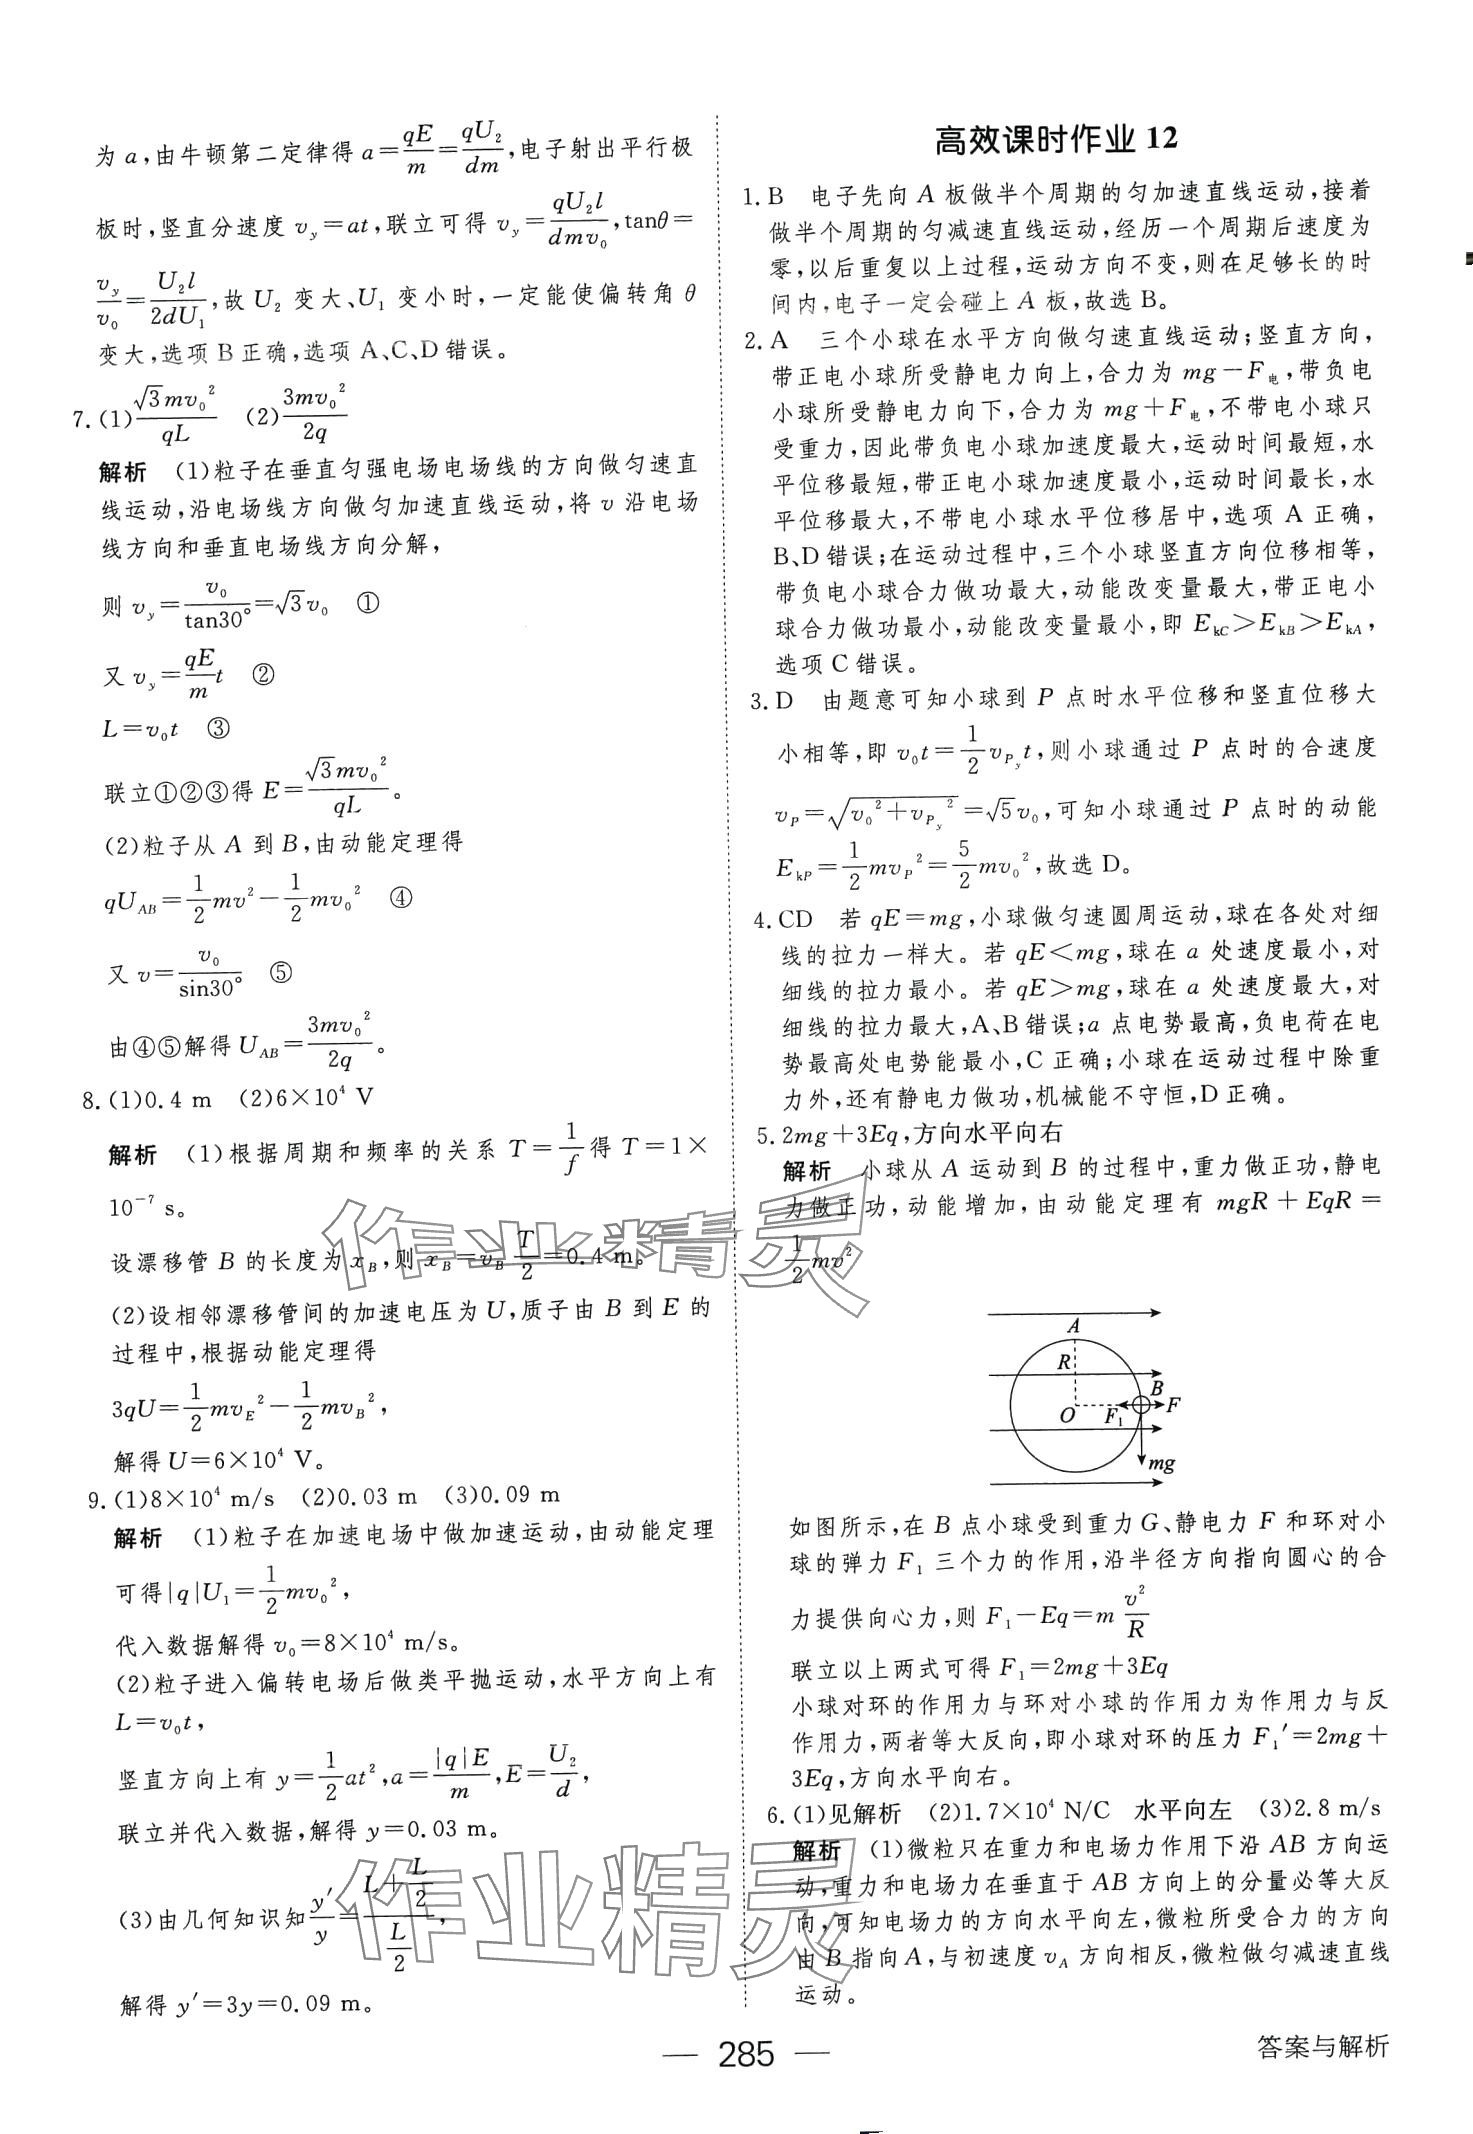 为 a,由牛顿第二定律得 a=qE/m=qU₂/dm,电子射出平行极
板时,竖直分速度 v_y=at,联立可得 v_y=qU₂l/dmv₀,tanθ=
v_y/v₀=U₂l/2dU₁,故 U₂ 变大、U₁ 变小时,一定能使偏转角 θ
变大,选项 B 正确,选项 A、C、D 错误。
7.(1)√3mv₀²/qL (2)3mv₀²/2q
解析 (1)粒子在垂直匀强电场电场线的方向做匀速直
线运动,沿电场线方向做匀加速直线运动,将 v 沿电场
线方向和垂直电场线方向分解,
则 v_y=v₀/tan30°=√3v₀ ①
又 v_y=qE/m t ②
L=v₀t ③
联立①②③得 E=√3mv₀²/qL。
(2)粒子从 A 到 B,由动能定理得
qU_AB=1/2mv²-1/2mv₀² ④
又 v=v₀/sin30° ⑤
由④⑤解得 U_AB=3mv₀²/2q。
8.(1)0.4 m (2)6×10⁴ V
解析 (1)根据周期和频率的关系 T=1/f得 T=1×
10⁻⁷ s。
设漂移管 B 的长度为 x_B,则 x_B=v_B T/2=0.4 m。
(2)设相邻漂移管间的加速电压为 U,质子由 B 到 E 的
过程中,根据动能定理得
3qU=1/2mv_E²-1/2mv_B²,
解得 U=6×10⁴ V。
9.(1)8×10⁴ m/s (2)0.03 m (3)0.09 m
解析 (1)粒子在加速电场中做加速运动,由动能定理
可得|q|U₁=1/2mv₀²,
代入数据解得 v₀=8×10⁴ m/s。
(2)粒子进入偏转电场后做类平抛运动,水平方向上有
L=v₀t,
竖直方向上有 y=1/2at²,a=|q|E/m,E=U₂/d,
联立并代入数据,解得 y=0.03 m。
(3)由几何知识知y′/y=(L+L/2)/(L/2),
解得 y′=3y=0.09 m。
高效课时作业 12
1.B 电子先向 A 板做半个周期的匀加速直线运动,接着
做半个周期的匀减速直线运动,经历一个周期后速度为
零,以后重复以上过程,运动方向不变,则在足够长的时
间内,电子一定会碰上 A 板,故选 B。
2.A 三个小球在水平方向做匀速直线运动;竖直方向,
带正电小球所受静电力向上,合力为 mg-F电,带负电
小球所受静电力向下,合力为 mg+F电,不带电小球只
受重力,因此带负电小球加速度最大,运动时间最短,水
平位移最短,带正电小球加速度最小,运动时间最长,水
平位移最大,不带电小球水平位移居中,选项 A 正确,
B、D 错误;在运动过程中,三个小球竖直方向位移相等,
带负电小球合力做功最大,动能改变量最大,带正电小
球合力做功最小,动能改变量最小,即 E_kC>E_kB>E_kA,
选项 C 错误。
3.D 由题意可知小球到 P 点时水平位移和竖直位移大
小相等,即 v₀t=1/2v_Py t,则小球通过 P 点时的合速度
v_P=√(v₀²+v_Py²)=√5v₀,可知小球通过 P 点时的动能
E_kP=1/2mv_P²=5/2mv₀²,故选 D。
4.CD 若 qE=mg,小球做匀速圆周运动,球在各处对细
线的拉力一样大。若 qE<mg,球在 a 处速度最小,对
细线的拉力最小。若 qE>mg,球在 a 处速度最大,对
细线的拉力最大,A、B 错误;a 点电势最高,负电荷在电
势最高处电势能最小,C 正确;小球在运动过程中除重
力外,还有静电力做功,机械能不守恒,D 正确。
5.2mg+3Eq,方向水平向右
解析 小球从 A 运动到 B 的过程中,重力做正功,静电
力做正功,动能增加,由动能定理有 mgR+EqR=
1/2mv²
A
R
B
O
F₁
F
mg
如图所示,在 B 点小球受到重力 G、静电力 F 和环对小
球的弹力 F₁ 三个力的作用,沿半径方向指向圆心的合
力提供向心力,则 F₁-Eq=m v²/R
联立以上两式可得 F₁=2mg+3Eq
小球对环的作用力与环对小球的作用力为作用力与反
作用力,两者等大反向,即小球对环的压力 F₁′=2mg+
3Eq,方向水平向右。
6.(1)见解析 (2)1.7×10⁴ N/C 水平向左 (3)2.8 m/s
解析 (1)微粒只在重力和电场力作用下沿 AB 方向运
动,重力和电场力在垂直于 AB 方向上的分量必等大反
向,可知电场力的方向水平向左,微粒所受合力的方向
由 B 指向 A,与初速度 v_A 方向相反,微粒做匀减速直线
运动。
作业精灵
作业精灵
— 285 —
答案与解析